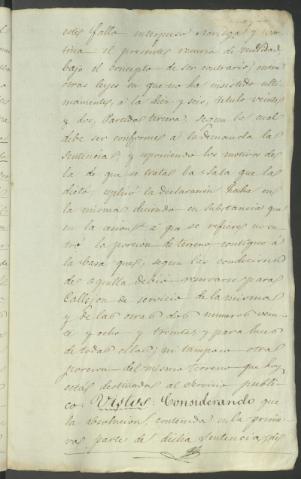 este falla interpuso Noriega y con-
tinua el presente recurso de nulidad
bajo el concepto de ser contrario, entre
otras leyes en que no ha insistido ulti-
mamente, á la diez y seis, titulo veinte
y dos, partida tercera, segun la cual
debe ser conforme á la demanda la
sentencia, y esponiendo los motivos de
la de que se trata la Sala que las
dictó, esplicó la declaracion hecha en
la misma diciendo en substancia que
en la accion á que se refiere no en-
tró la porcion de terreno contiguo á
la Casa que, segun las condiciones
de aquella debió reservarse para
Callejon de servicio de la misma
y de las otras dos numeros vein-
te y ocho y treinta, y para luces
de todas ellas, ni tampoco otras
porcion del mismo terreno que hoy
está destinada al servicio publi-
co: Vistos: Considerando que
la absolucion, contenida en la prime-
ra parte de dicha sentencia,